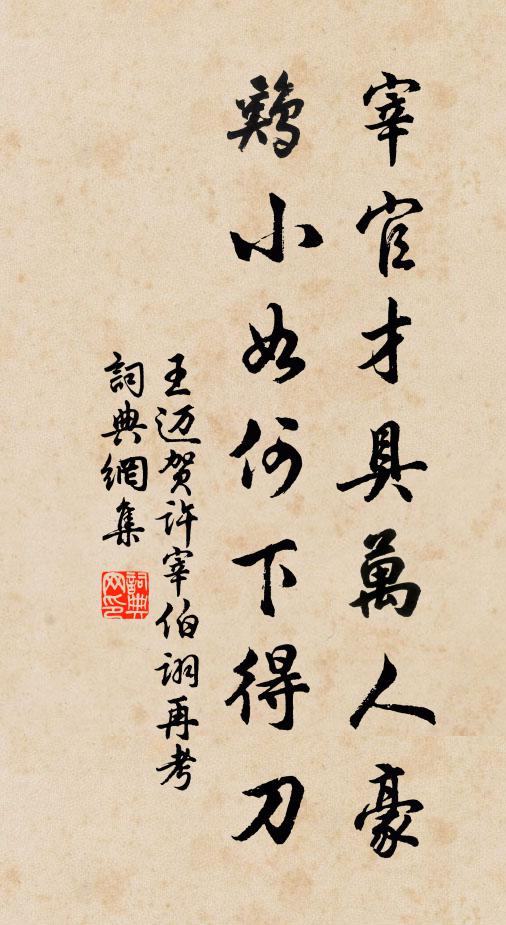 宰官才具萬人豪
鷄小如何下得刀
王迈贺许宰伯詡再考
詞典網集
詞典网印